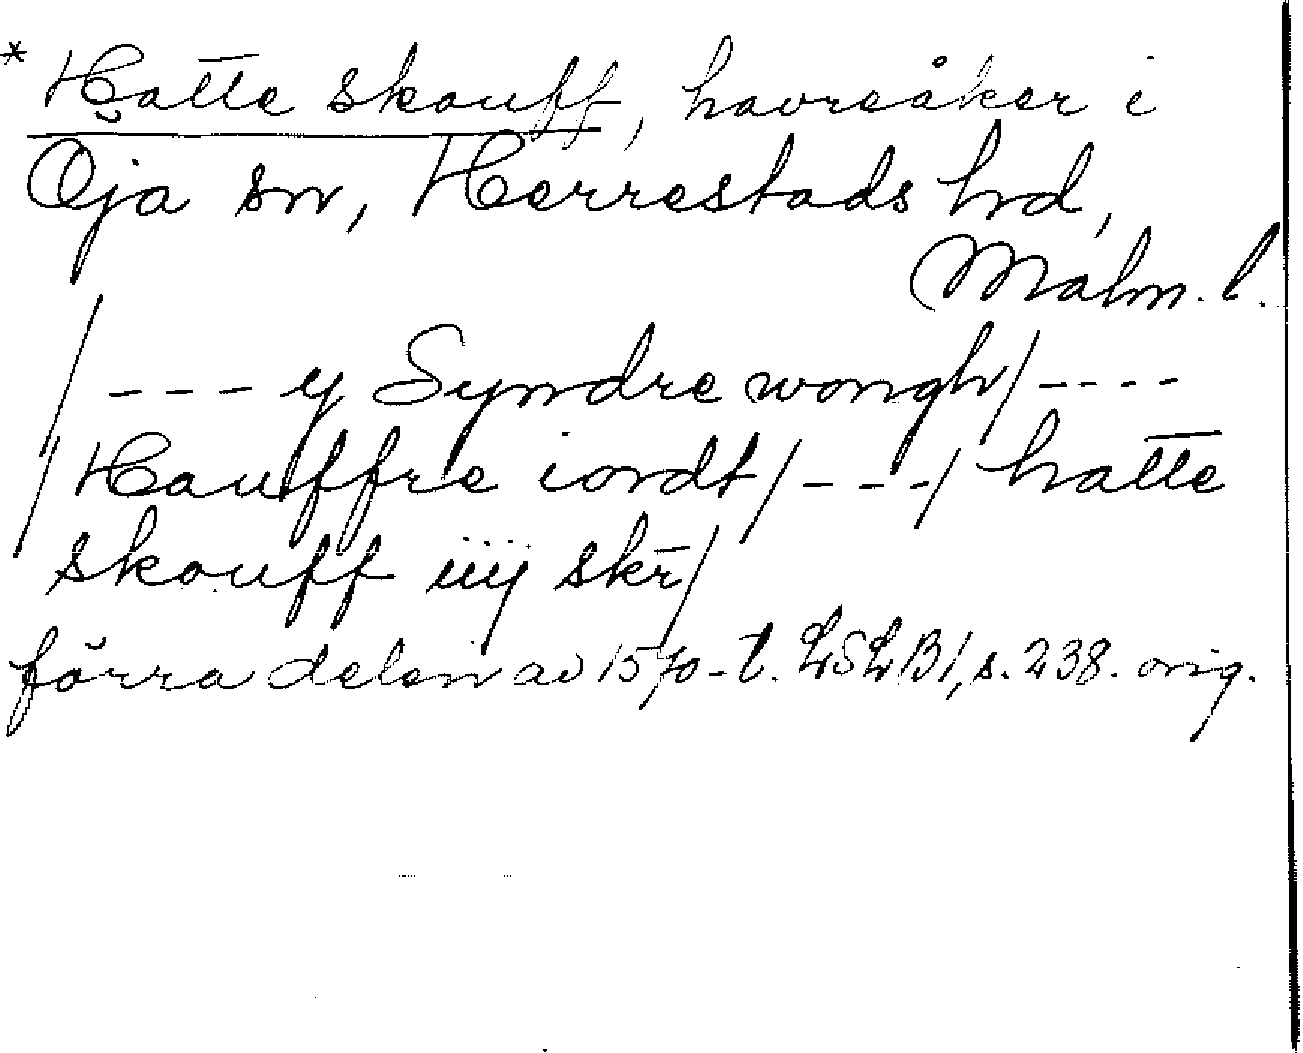 * Hatte skouff, havreåker i
Öja sn, Herrestads hrd,
Malm. l.
/ - - - y Syndre wongh / - - - -
/ Hauffre iordt / - - - / hatte
skouff iiij skr̄ /
förra delen av 1570-t. LSLB1, s. 238. orig.